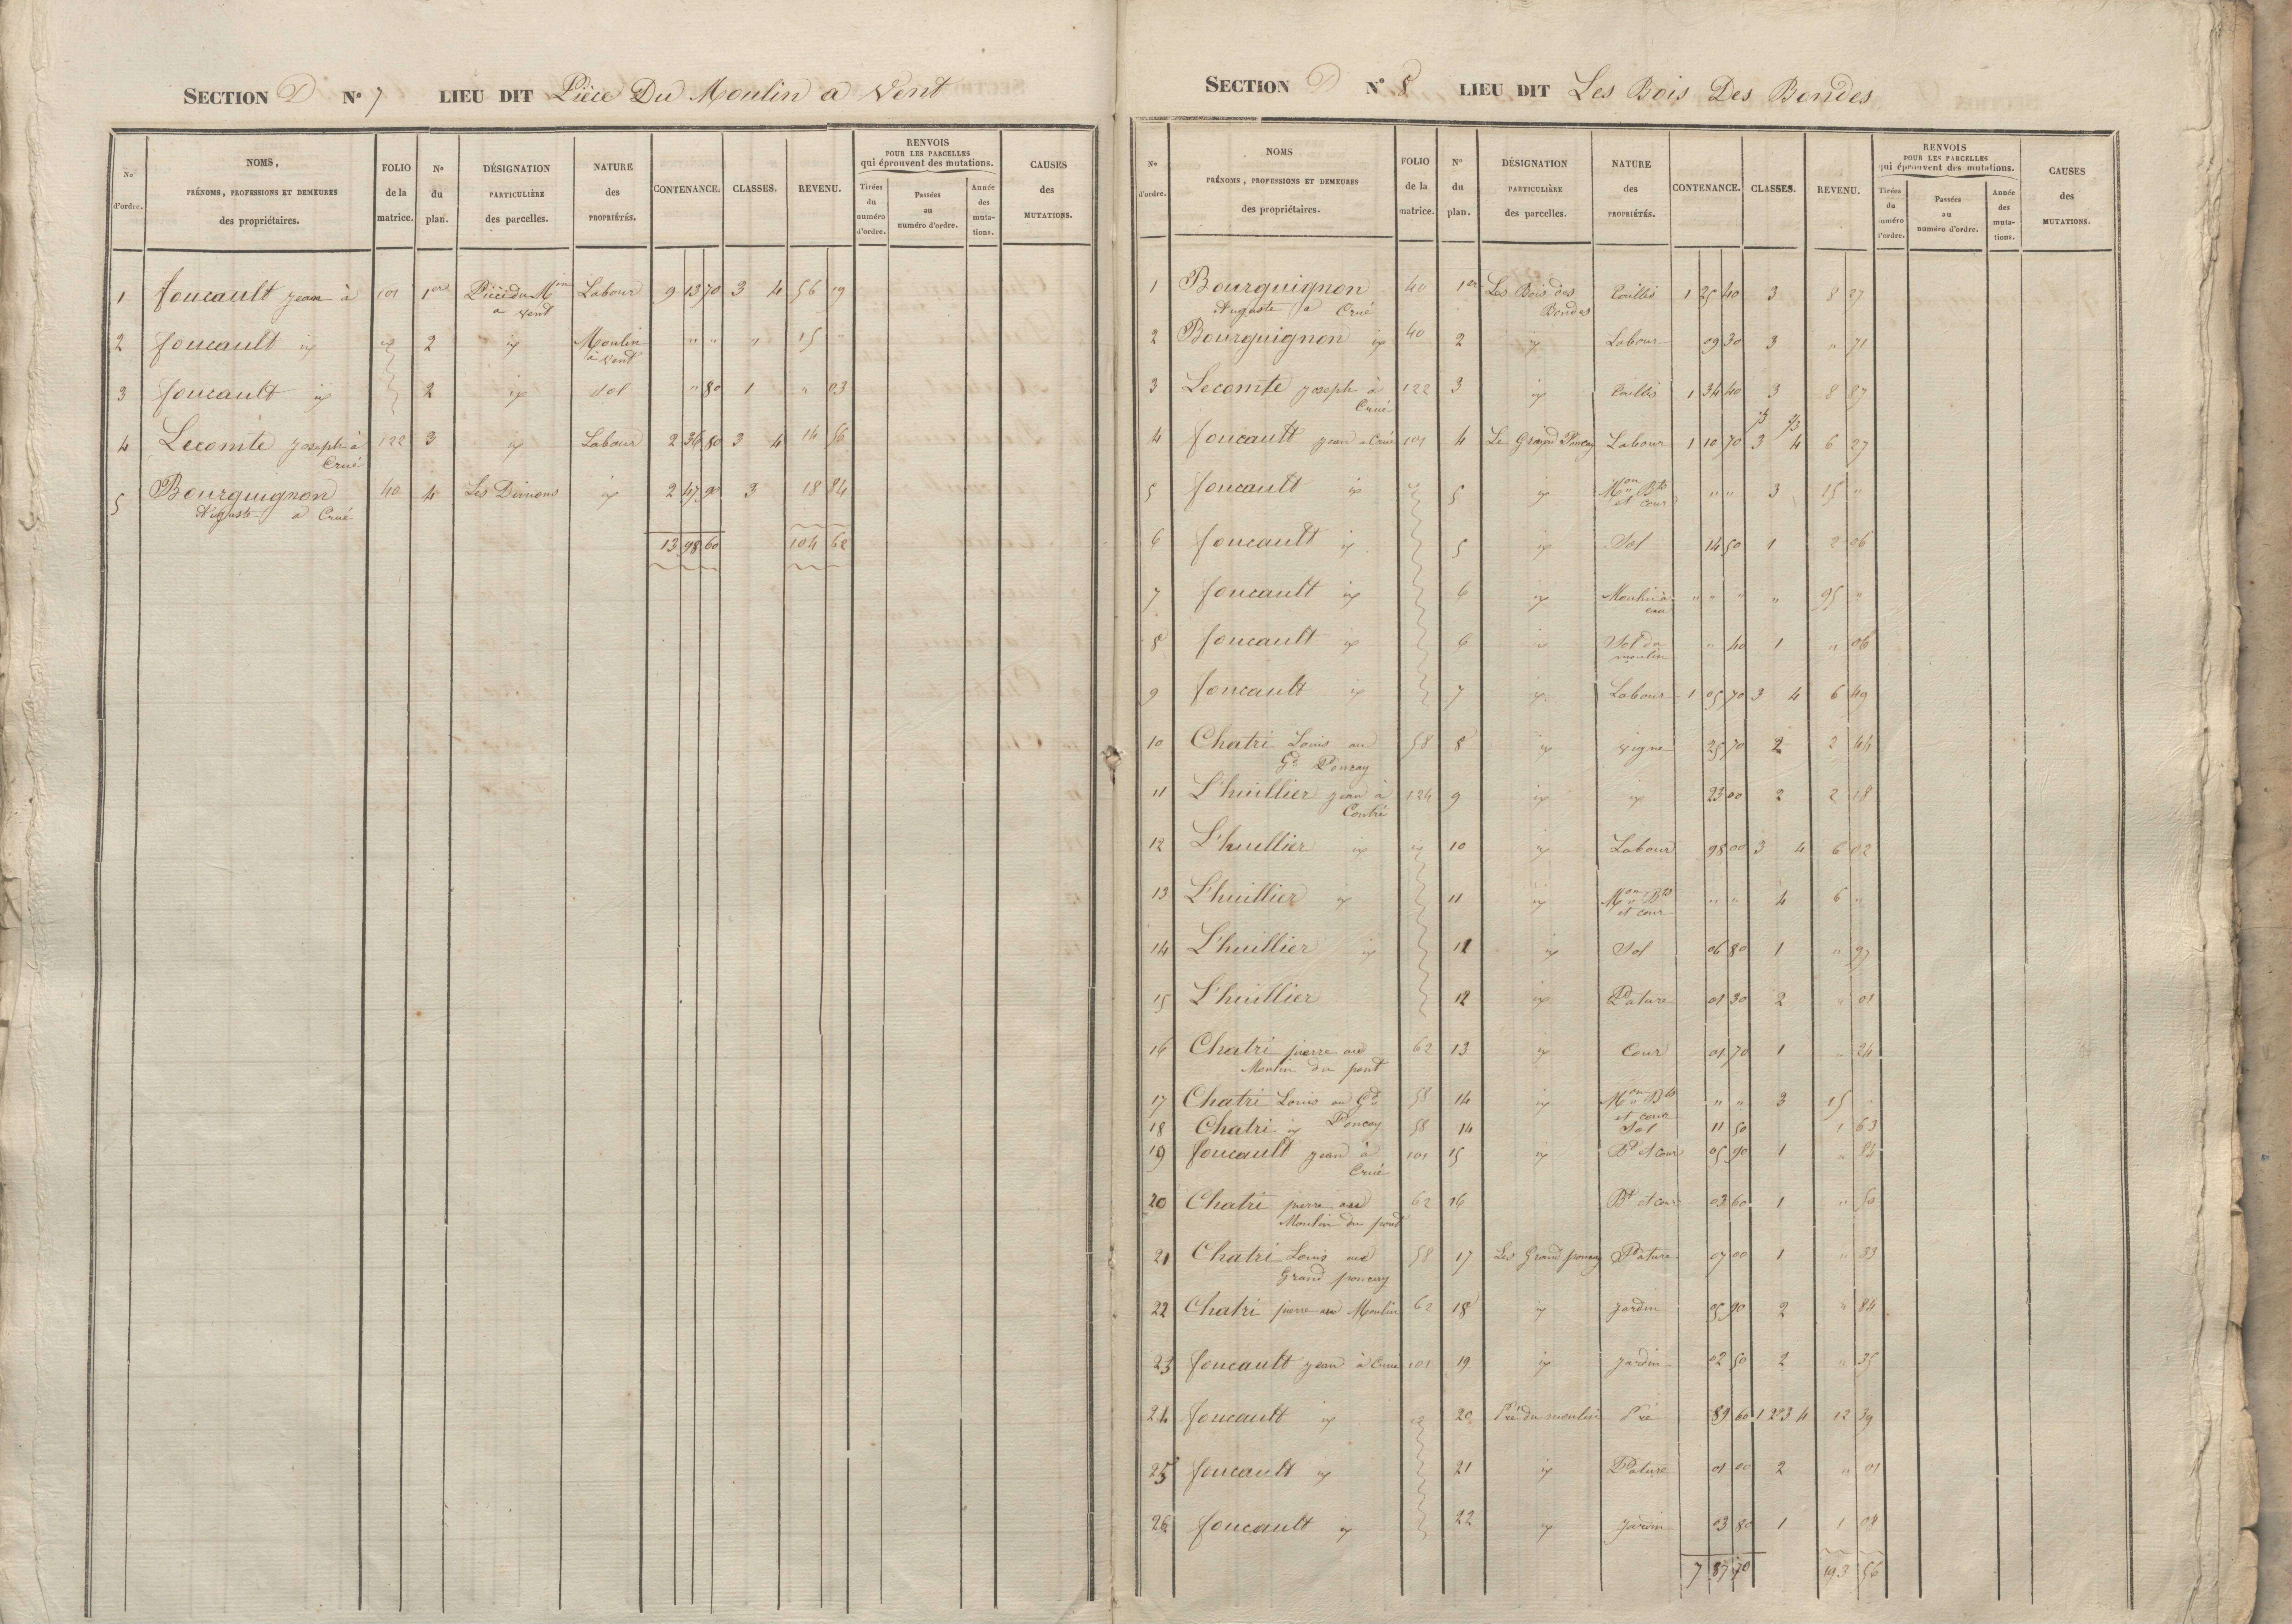 SECTION D N° 7 LIEU DIT Pièce Du Moulin a Vent
No d'ordre. NOMS, PRÉNOMS, PROFESSIONS ET DEMEURES des propriétaires. FOLIO de la matrice. No du plan. DÉSIGNATION PARTICULIÈRE des parcelles. NATURE des PROPRIÉTÉS. CONTENANCE. CLASSES. REVENU. RENVOIS POUR LES PARCELLES qui éprouvent des mutations. Tirées du numéro d'ordre. Passées au numéro d'ordre. Année des mutations. CAUSES des MUTATIONS.
1 foucault jean à 101 1er Pièce du Min Labour 9 13 70 3 4 56 19
a vent
2 foucault id id 2 id Moulin " " " 15 "
à vent
3 foucault id 2 id sol " 80 1 " 03
4 Lecomte joseph à 122 3 id Labour 2 36 80 3 4 14 56
Crué
5 Bourguignon 40 4 Les Dimons id 2 47 90 3 18 84
Auguste a Crué
13 98 60 104 62
SECTION D N° 8 LIEU DIT Les Bois Des Bondes
No d'ordre. NOMS PRÉNOMS, PROFESSIONS ET DEMEURES des propriétaires. FOLIO de la matrice. N° du plan. DÉSIGNATION PARTICULIÈRE des parcelles. NATURE des PROPRIÉTÉS. CONTENANCE. CLASSES. REVENU. RENVOIS POUR LES PARCELLES qui éprouvent des mutations. Tirées du numéro d'ordre. Passées au numéro d'ordre. Année des mutations. CAUSES des MUTATIONS.
1 Bourguignon 40 1er Les Bois des taillis 1 25 40 3 8 27
Auguste a Crué Bondes
2 Bourguignon id 40 2 id Labour 09 30 3 " 71
3 Lecomte joseph à 122 3 id taillis 1 34 40 3 8 87
Crué
4 foucault jean a Crué 101 4 Le Grand Poncay Labour 1 10 70 3 4 6 27
5 foucault id id 5 id Mon Bts " " 3 15 "
et cour
6 foucault id 5 id Sol 14 50 1 2 06
7 foucault id 6 id Moulin à " " " " 95 "
eau
8 foucault id 6 id Sol du " 40 1 " 06
moulin
9 foucault id 7 id Labour 1 05 70 3 4 6 49
10 Chatri Louis au 58 8 id vigne 25 70 2 2 44
Gd Poncay
11 L'huillier jean à 124 9 id id 23 00 2 2 18
Contré
12 L'huillier id id 10 id Labour 98 00 3 4 6 02
13 L'huillier id 11 id Mon Bts " " 4 6 "
et cour
14 L'huillier id 11 id Sol 06 80 1 " 97
15 L'huillier 12 id Pature 01 30 2 " 01
16 Chatri pierre au 62 13 id Cour 01 70 1 " 24
Moulin du pont
17 Chatri Louis au Gd 58 14 id Mon Bts " " 3 15 "
Poncay et cour
18 Chatri id 58 14 Sol 11 50 1 63
19 foucault jean à 101 15 id Bt et cour 05 90 1 " 84
Crué
20 Chatri pierre au 62 16 Bt et cour 03 60 1 " 50
Moulin du pont
21 Chatri Louis au 58 17 Les Grand poncay Pature 07 00 1 " 33
Grand poncay
22 Chatri pierre au Moulin 62 18 id jardin 05 90 2 " 84
23 foucault jean à Crué 101 19 id jardin 02 50 2 " 35
24 foucault id id 20 Pré du moulin Pré 89 60 1 2 3 4 12 39
25 foucault id 21 id Pature 01 00 2 " 01
26 foucault id 22 id jardin 03 80 1 1 08
7 87 70 193 56